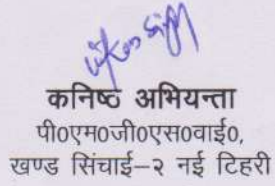 कनिष्ठ अभियन्ता
पी०एम०जी०एस०वाई०,
खण्ड सिंचाई–२ नई टिहरी